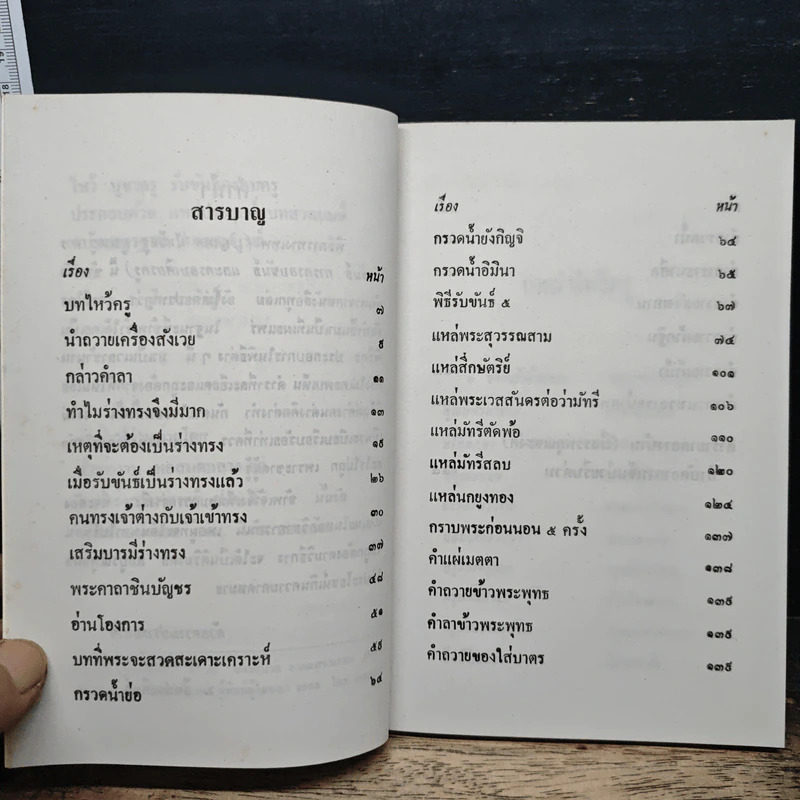 สารบาญ
เรื่อง หน้า
บทไหว้ครู ๗
นำถวายเครื่องสังเวย ๙
กล่าวคำลา ๑๑
ทำไมร่างทรงจึงมีมาก ๑๓
เหตุที่จะต้องเป็นร่างทรง ๑๙
เมื่อรับขันธ์เป็นร่างทรงแล้ว ๒๖
คนทรงเจ้าต่างกับเจ้าเข้าทรง ๓๐
เสริมบารมีร่างทรง ๓๗
พระคาถาชินบัญชร ๔๘
อ่านโองการ ๕๑
บทที่พระจะสวดสะเดาะเคราะห์ ๕๙
กรวดน้ำย่อ ๖๔
เรื่อง หน้า
กรวดน้ำยังกิญจิ ๖๔
กรวดน้ำอิมินา ๖๕
พิธีรับขันธ์ ๕ ๖๗
แหล่พระสุวรรณสาม ๗๔
แหล่สึกษัตริย์ ๑๐๑
แหล่พระเวสสันดรต่อว่ามัทรี ๑๐๖
แหล่มัทรีตัดพ้อ ๑๑๐
แหล่มัทรีสลบ ๑๒๐
แหล่นกยูงทอง ๑๒๔
กราบพระก่อนนอน ๕ ครั้ง ๑๓๗
คำแผ่เมตตา ๑๓๘
คำถวายข้าวพระพุทธ ๑๓๙
คำลาข้าวพระพุทธ ๑๓๙
คำถวายของใส่บาตร ๑๓๙
18
19